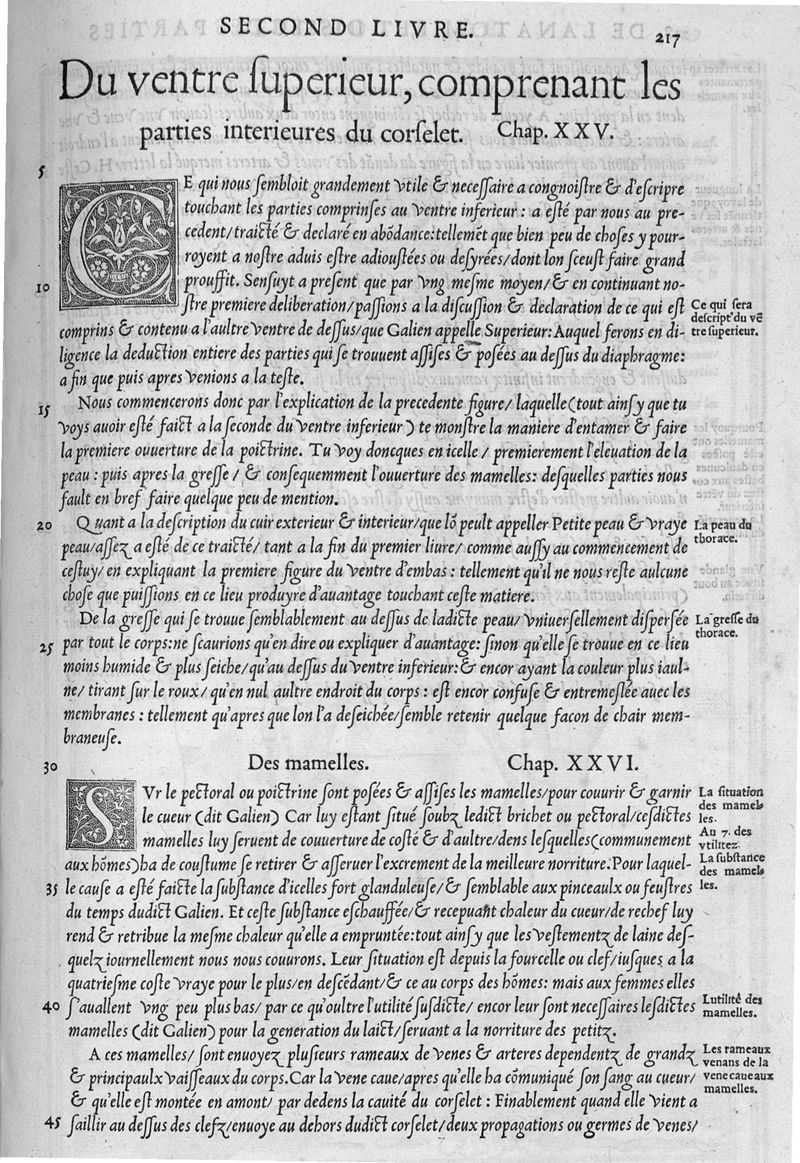 SECOND LIVRE.
217
Du ventre ſuperieur, comprenant les
parties interieures du corſelet. Chap. XXV.
5
CE qui nous ſembloit grandement vtile & neceſſaire a congnoiſtre & d'eſcripre
touchant les parties comprinſes au ventre inferieur : a eſté par nous au pre-
cedent/traicté & declaré en abōdance:tellemēt que bien peu de choſes y pour-
royent a noſtre aduis eſtre adiouſtées ou deſyrées/dont lon ſceuſt faire grand
10
prouffit. Senſuyt a preſent que par vng meſme moyen/& en continuant no-
ſtre premiere deliberation/paſſions a la diſcuſſion & declaration de ce qui eſt
Ce qui ſera
deſcript'du vē
tre ſuperieur.
comprins & contenu a l'aultre ventre de deſſus/que Galien appelle Superieur: Auquel ferons en di-
ligence la deduction entiere des parties qui ſe trouuent aſſiſes & poſées au deſſus du diaphragme:
a fin que puis apres venions a la teſte.
15
Nous commencerons donc par l'explication de la precedente figure/ laquelle (tout ainſy que tu
voys auoir eſté faict a la ſeconde du ventre inferieur) te monſtre la maniere d'entamer & faire
la premiere ouuerture de la poictrine. Tu voy doncques en icelle / premierement l'eleuation de la
peau : puis apres la greſſe / & conſequemment l'ouuerture des mamelles: deſquelles parties nous
fault en bref faire quelque peu de mention.
20
Quant a la deſcription du cuir exterieur & interieur/que lō peult appeller Petite peau & vraye
La peau du
thorace.
peau/aſſez a eſté de ce traicté/ tant a la fin du premier liure/ comme auſſy au commencement de
ceſtuy/ en expliquant la premiere figure du ventre d'embas : tellement qu'il ne nous reſte aulcune
choſe que puiſſions en ce lieu produyre d'auantage touchant ceſte matiere.
De la greſſe qui ſe trouue ſemblablement au deſſus de ladicte peau/ vniuerſellement diſperſée
La greſſe du
thorace.
25
par tout le corps:ne ſcaurions qu'en dire ou expliquer d'auantage: ſinon qu'elle ſe trouue en ce lieu
moins humide & plus ſeiche/qu'au deſſus du ventre inferieur:& encor ayant la couleur plus iaul-
ne/ tirant ſur le roux/ qu'en nul aultre endroit du corps : eſt encor confuſe & entremeſlée auec les
membranes : tellement qu'apres que lon l'a deſeichée/ſemble retenir quelque facon de chair mem-
braneuſe.
30
Des mamelles. Chap. XXVI.
SVr le pectoral ou poictrine ſont poſées & aſſiſes les mamelles/pour couurir & garnir
La ſituation
des mamel-
les.
le cueur (dit Galien) Car luy eſtant ſitué ſoubz ledict brichet ou pectoral/ceſdictes
mamelles luy ſeruent de couuerture de coſté & d'aultre/dens leſquelles (communement
Au 7. des
vtilitez.
aux hōmes) ha de couſtume ſe retirer & aſſeruer l'excrement de la meilleure norriture.Pour laquel-
La ſubſtance
des mamel-
les.
35
le cauſe a eſté faicte la ſubſtance d'icelles fort glanduleuſe/& ſemblable aux pinceaulx ou feuſtres
du temps dudict Galien. Et ceſte ſubſtance eſchauffée/& recepuant chaleur du cueur/de rechef luy
rend & retribue la meſme chaleur qu'elle a empruntée:tout ainſy que les veſtementz de laine deſ-
quelz iournellement nous nous couurons. Leur ſituation eſt depuis la fourcelle ou clef/iuſques a la
quatrieſme coſte vraye pour le plus/en deſcēdant/& ce au corps des hōmes: mais aux femmes elles
40
s'auallent vng peu plus bas/ par ce qu'oultre l'utilité ſuſdicte/ encor leur ſont neceſſaires leſdictes
Lutilité des
mamelles.
mamelles (dit Galien) pour la generation du laict/ſeruant a la norriture des petitz.
A ces mamelles/ ſont enuoyez pluſieurs rameaux de venes & arteres dependentz de grandz
Les rameaux
venans de la
vene caue aux
mamelles.
& principaulx vaiſſeaux du corps. Car la vene caue/apres qu'elle ha cōmuniqué ſon ſang au cueur/
& qu'elle eſt montée en amont/ par dedens la cauité du corſelet : Finablement quand elle vient a
45
ſaillir au deſſus des clefz/enuoye au dehors dudict corſelet/deux propagations ou germes de venes/